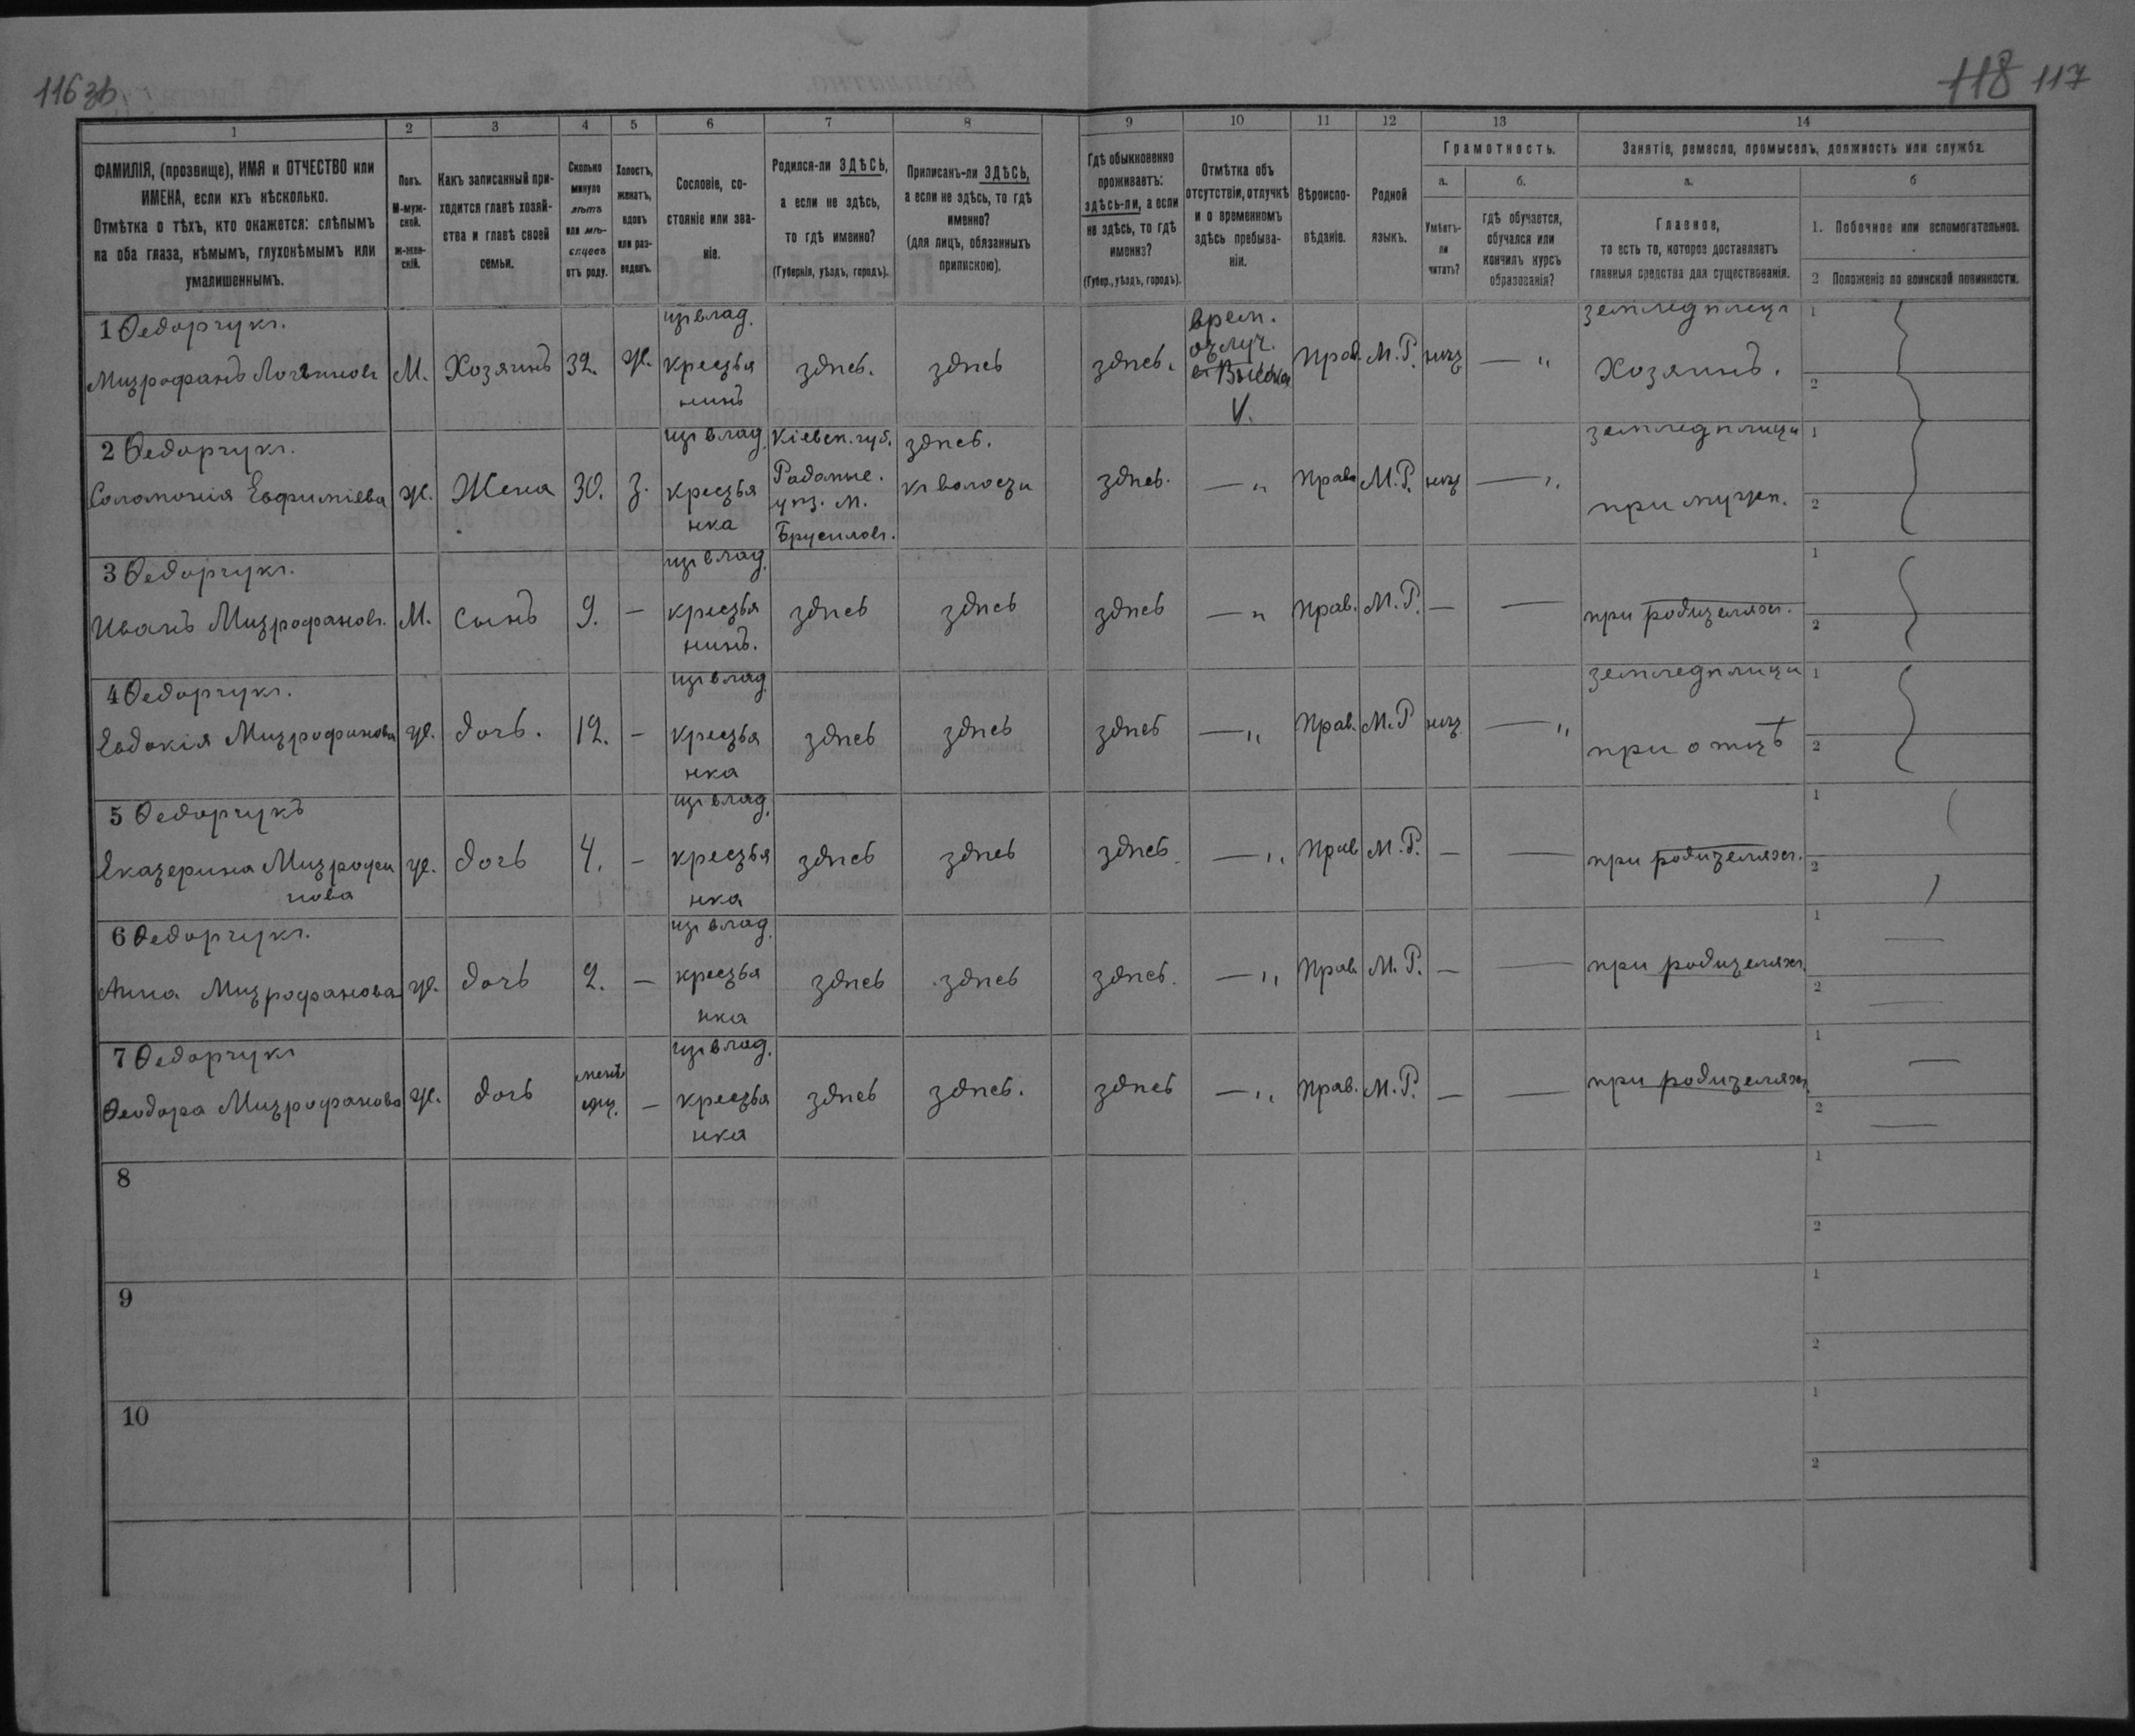 116 зв
118 117
1 2 3 4 5 6 7 8 9 10 11 12 13 14
ФАМИЛІЯ, (прозвище), ИМЯ и ОТЧЕСТВО или
ИМЕНА, если ихъ нѣсколько.
Отмѣтка о тѣхъ, кто окажется: слѣпымъ
на оба глаза, нѣмымъ, глухонѣмымъ или
умалишеннымъ.
Полъ.
М-муж-
ской.
ж-жен-
скій.
Какъ записанный при-
ходится главѣ хозяй-
ства и главѣ своей
семьи.
Сколько
минуло
лѣтъ
или мѣ-
сяцевъ
отъ роду.
Холостъ,
женатъ,
вдовъ
или раз-
веденъ.
Сословіе, со-
стояніе или зва-
ніе.
Родился-ли ЗДѢСЬ,
а если не здѣсь,
то гдѣ именно?
(Губернія, уѣздъ, городъ).
Приписанъ-ли ЗДѢСЬ,
а если не здѣсь, то гдѣ
именно?
(для лицъ, обязанныхъ
припискою).
Гдѣ обыкновенно
проживаетъ:
здѣсь-ли, а если
не здѣсь, то гдѣ
именно?
(Губер., уѣздъ, городъ).
Отмѣтка объ
отсутствіи, отлучкѣ
и о временномъ
здѣсь пребыва-
ніи.
Вѣроиспо-
вѣданіе.
Родной
языкъ.
Грамотность.
а.
Умѣетъ-
ли
читать?
б.
гдѣ обучается,
обучался или
кончилъ курсъ
образованія?
Занятіе, ремесло, промыселъ, должность или служба.
а.
Главное,
то есть то, которое доставляетъ
главныя средства для существованія.
б
1. Побочное или вспомогательное.
2 Положеніе по воинской повинности.
1 Ѳедорчукъ.
Митрофанъ Логвиновъ
М.
Хозяинъ
32.
ж.
изъ влад.
крестья
нинъ
здѣсь.
здѣсь
здѣсь.
врем.
отлуч.
V.
Прав.
М. Р.
нѣтъ
— "
земледѣлецъ
Хозяинъ.
1
2
2 Ѳедорчукъ.
Соломонія Евфиміева
ж.
Жена
30.
З.
изъ влад.
крестья
нка
Кіевск. губ.
Радомыс.
уѣз. М.
Брусиловъ.
здѣсь.
къ волости
здѣсь.
— "
Прав.
М. Р.
нѣтъ
— "
земледѣлица
при мужѣ.
1
2
3 Ѳедорчукъ.
Иванъ Митрофановъ.
М.
сынъ
9.
—
изъ влад.
крестья
нинъ.
здѣсь
здѣсь
здѣсь
— "
Прав.
М. Р.
—
—
при родителяхъ.
1
2
4 Ѳедорчукъ.
Евдокія Митрофанова
ж.
дочь.
12.
—
изъ влад.
крестья
нка
здѣсь
здѣсь
здѣсь
— "
Прав.
М. Р
нѣтъ
— "
земледѣлица
при отцѣ
1
2
5 Ѳедорчукъ
Екатерина Митрофа
нова
ж.
дочь
4.
—
изъ влад.
крестья
нка
здѣсь
здѣсь
здѣсь.
— "
Прав
М. Р.
—
—
при родителяхъ.
1
2
6 Ѳедорчукъ.
Анна Митрофанова
ж.
дочь
2.
—
изъ влад.
крестья
нка
здѣсь
здѣсь
здѣсь.
— "
Прав.
М. Р.
—
—
при родителяхъ.
1
2
7 Ѳедорчукъ
Ѳеодора Митрофанова
ж.
дочь
—
изъ влад.
крестья
нка
здѣсь
здѣсь.
здѣсь
— "
Прав.
М. Р.
—
—
при родителяхъ
1
2
8
1
2
9
1
2
10
1
2